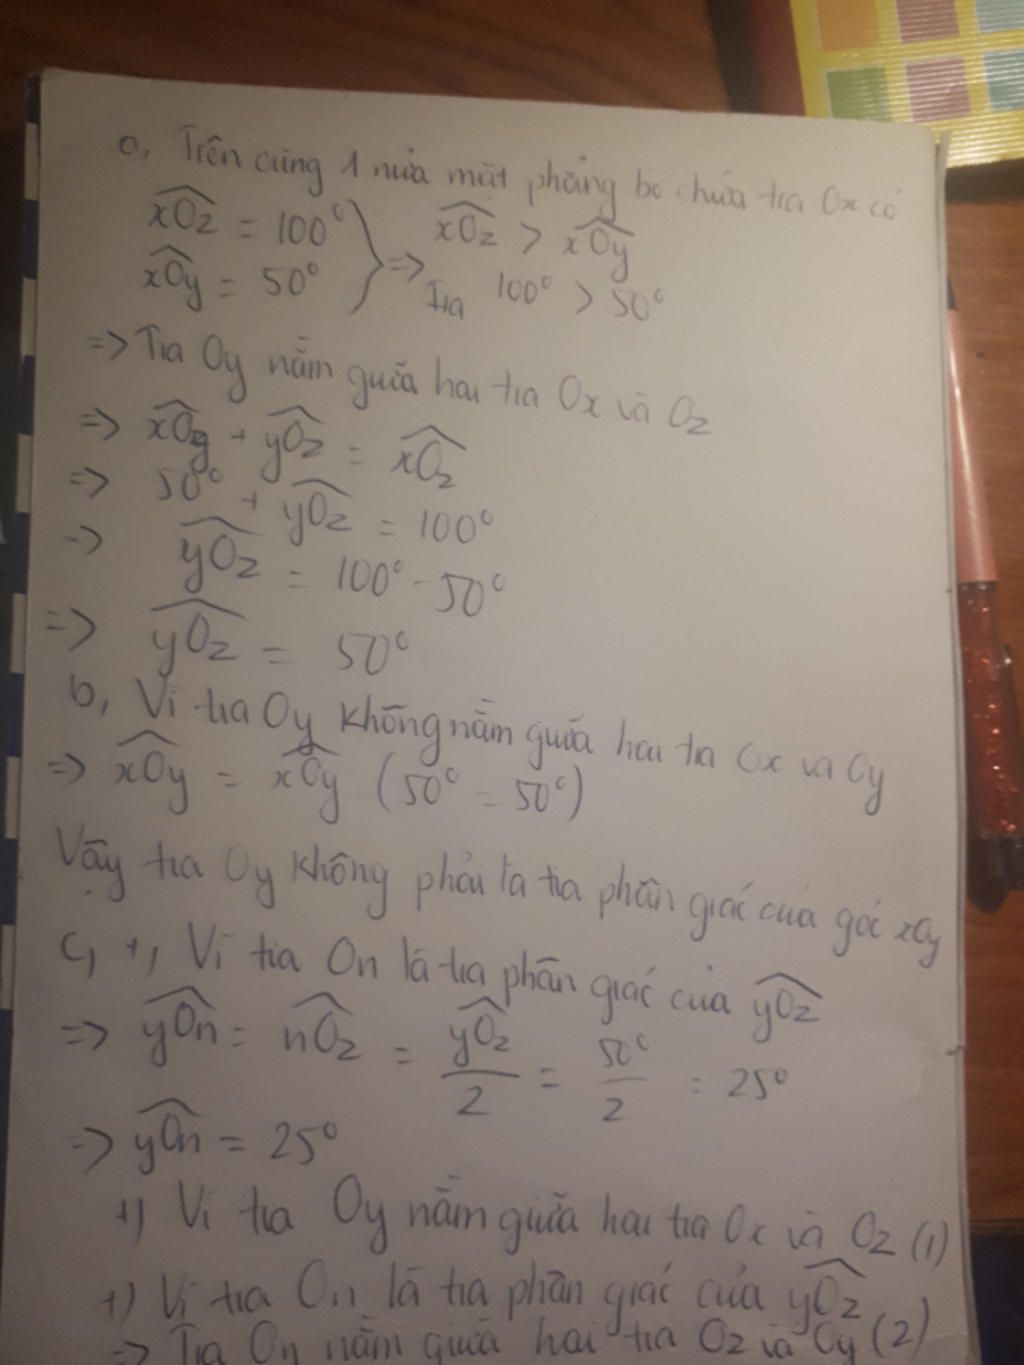 a, Trên cùng 1 nửa mặt phẳng bờ chứa tia Ox có
xOz = 100° } => xOz > xOy
xOy = 50° 100° > 50°
=> Tia Oy nằm giữa hai tia Ox và Oz
=> xOy + yOz = xOz
=> 50° + yOz = 100°
=> yOz = 100° - 50°
=> yOz = 50°
b, Vì tia Oy không nằm giữa hai tia Ox và Oy
=> xOy = xOy (50° = 50°)
Vậy tia Oy không phải là tia phân giác của góc xOy
c, +, Vì tia On là tia phân giác của yOz
=> yOn = nOz = yOz/2 = 50°/2 = 25°
=> yOn = 25°
+) Vì tia Oy nằm giữa hai tia Ox và Oz (1)
+) Vì tia On là tia phân giác của yOz
=> Tia On nằm giữa hai tia Oz và Oy (2)